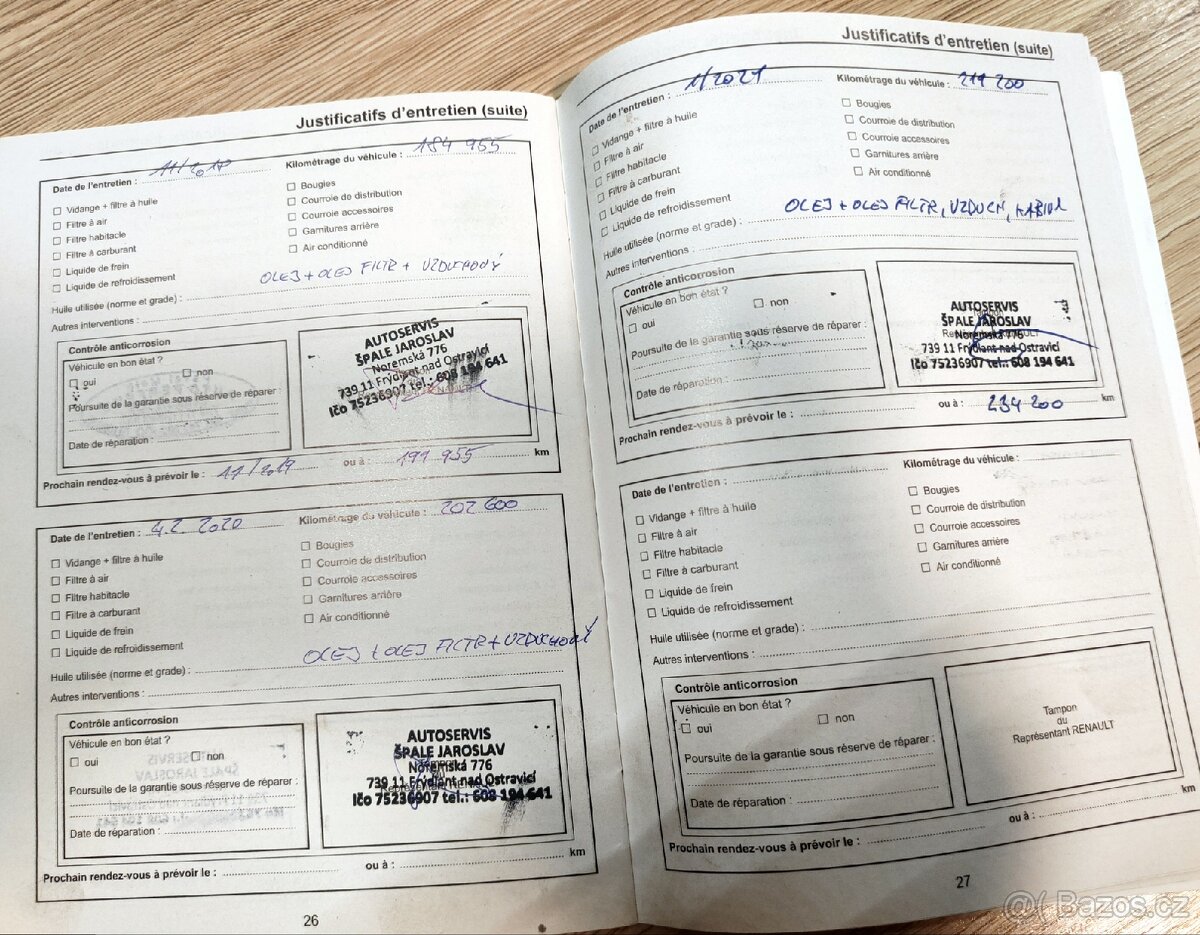 Justificatifs d'entretien (suite)
Date de l'entretien : 11/2017 Kilométrage du véhicule : 184 955
Vidange + filtre à huile
Filtre à air
Filtre habitacle
Filtre à carburant
Liquide de frein
Liquide de refroidissement
Bougies
Courroie de distribution
Courroie accessoires
Garnitures arrière
Air conditionné
OLEJ + OLEJ FILTR + VZDUCHOVÝ
Huile utilisée (norme et grade) :
Autres interventions :
Contrôle anticorrosion
Véhicule en bon état ?
oui non
Poursuite de la garantie sous réserve de réparer :
Date de réparation :
AUTOSERVIS
ŠPALE JAROSLAV
Noremská 776
739 11 Frýdlant nad Ostravicí
Ičo 75236907 tel.: 608 194 641
Prochain rendez-vous à prévoir le : 11/2019 ou à : 199 955 km
Date de l'entretien : 4.2. 2020 Kilométrage du véhicule : 202 600
Vidange + filtre à huile
Filtre à air
Filtre habitacle
Filtre à carburant
Liquide de frein
Liquide de refroidissement
Bougies
Courroie de distribution
Courroie accessoires
Garnitures arrière
Air conditionné
OLEJ + OLEJ FILTR + VZDUCHOVÝ
Huile utilisée (norme et grade) :
Autres interventions :
Contrôle anticorrosion
Véhicule en bon état ?
oui non
Poursuite de la garantie sous réserve de réparer :
Date de réparation :
AUTOSERVIS
ŠPALE JAROSLAV
Noremská 776
739 11 Frýdlant nad Ostravicí
Ičo 75236907 tel.: 608 194 641
Prochain rendez-vous à prévoir le : ou à : km
26
Justificatifs d'entretien (suite)
Date de l'entretien : 1/2021 Kilométrage du véhicule : 219 200
Vidange + filtre à huile
Filtre à air
Filtre habitacle
Filtre à carburant
Liquide de frein
Liquide de refroidissement
Bougies
Courroie de distribution
Courroie accessoires
Garnitures arrière
Air conditionné
OLEJ + OLEJ FILTR, VZDUCH,
Huile utilisée (norme et grade) :
Autres interventions :
Contrôle anticorrosion
Véhicule en bon état ?
oui non
Poursuite de la garantie sous réserve de réparer :
Date de réparation :
AUTOSERVIS
ŠPALE JAROSLAV
Noremská 776
739 11 Frýdlant nad Ostravicí
Ičo 75236907 tel.: 608 194 641
Prochain rendez-vous à prévoir le : ou à : 234 200 km
Date de l'entretien : Kilométrage du véhicule :
Vidange + filtre à huile
Filtre à air
Filtre habitacle
Filtre à carburant
Liquide de frein
Liquide de refroidissement
Bougies
Courroie de distribution
Courroie accessoires
Garnitures arrière
Air conditionné
Huile utilisée (norme et grade) :
Autres interventions :
Contrôle anticorrosion
Véhicule en bon état ?
oui non
Poursuite de la garantie sous réserve de réparer :
Date de réparation :
Tampon
du
Représentant RENAULT
Prochain rendez-vous à prévoir le : ou à : km
27
Bazos.cz